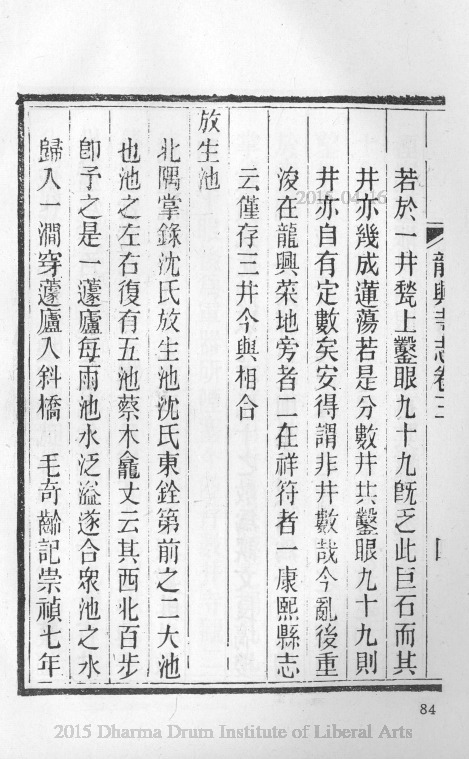 龍興寺志卷三
若於一井甃上鑿眼九十九旣乏此巨石而其
井亦幾成蓮蕩若是分數井共鑿眼九十九則
井亦自有定數矣安得謂非井數哉今亂後重
浚在龍興菜地旁者二在祥符者一康熙縣志
云僅存三井今與相合
放生池
北隅掌錄沈氏放生池沈氏東銓第前之二大池
也池之左右復有五池蔡木龕丈云其西北百步
卽予之是一蘧廬每雨池水泛溢遂合衆池之水
歸入一澗穿蘧廬入斜橋　毛奇齡記崇禎七年
84
2015 Dharma Drum Institute of Liberal Arts